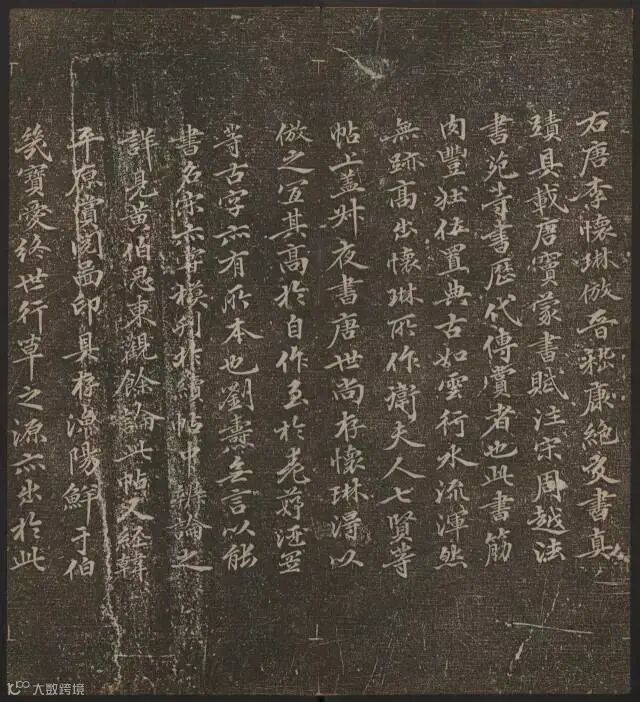 右唐李懷琳倣晉嵇康絕交書真
蹟具載唐竇蒙書賦注宋周越法
書苑等書歷代傳賞者也此書筋
肉豐壯位置典古如雲行水流渾然
無跡高出懷琳所作衛夫人七賢等
帖上蓋叔夜書唐世尚存懷琳得以
倣之宜其高於自作至於老
等古字亦有所本也劉燾無言以能
書名宋亦嘗模刊於續帖中辨論之
詳見黃伯思東觀餘論此帖又經韓
平原賞閱印具存漁陽鮮于伯
幾寶愛終世行草之源亦出於此
大数跨境